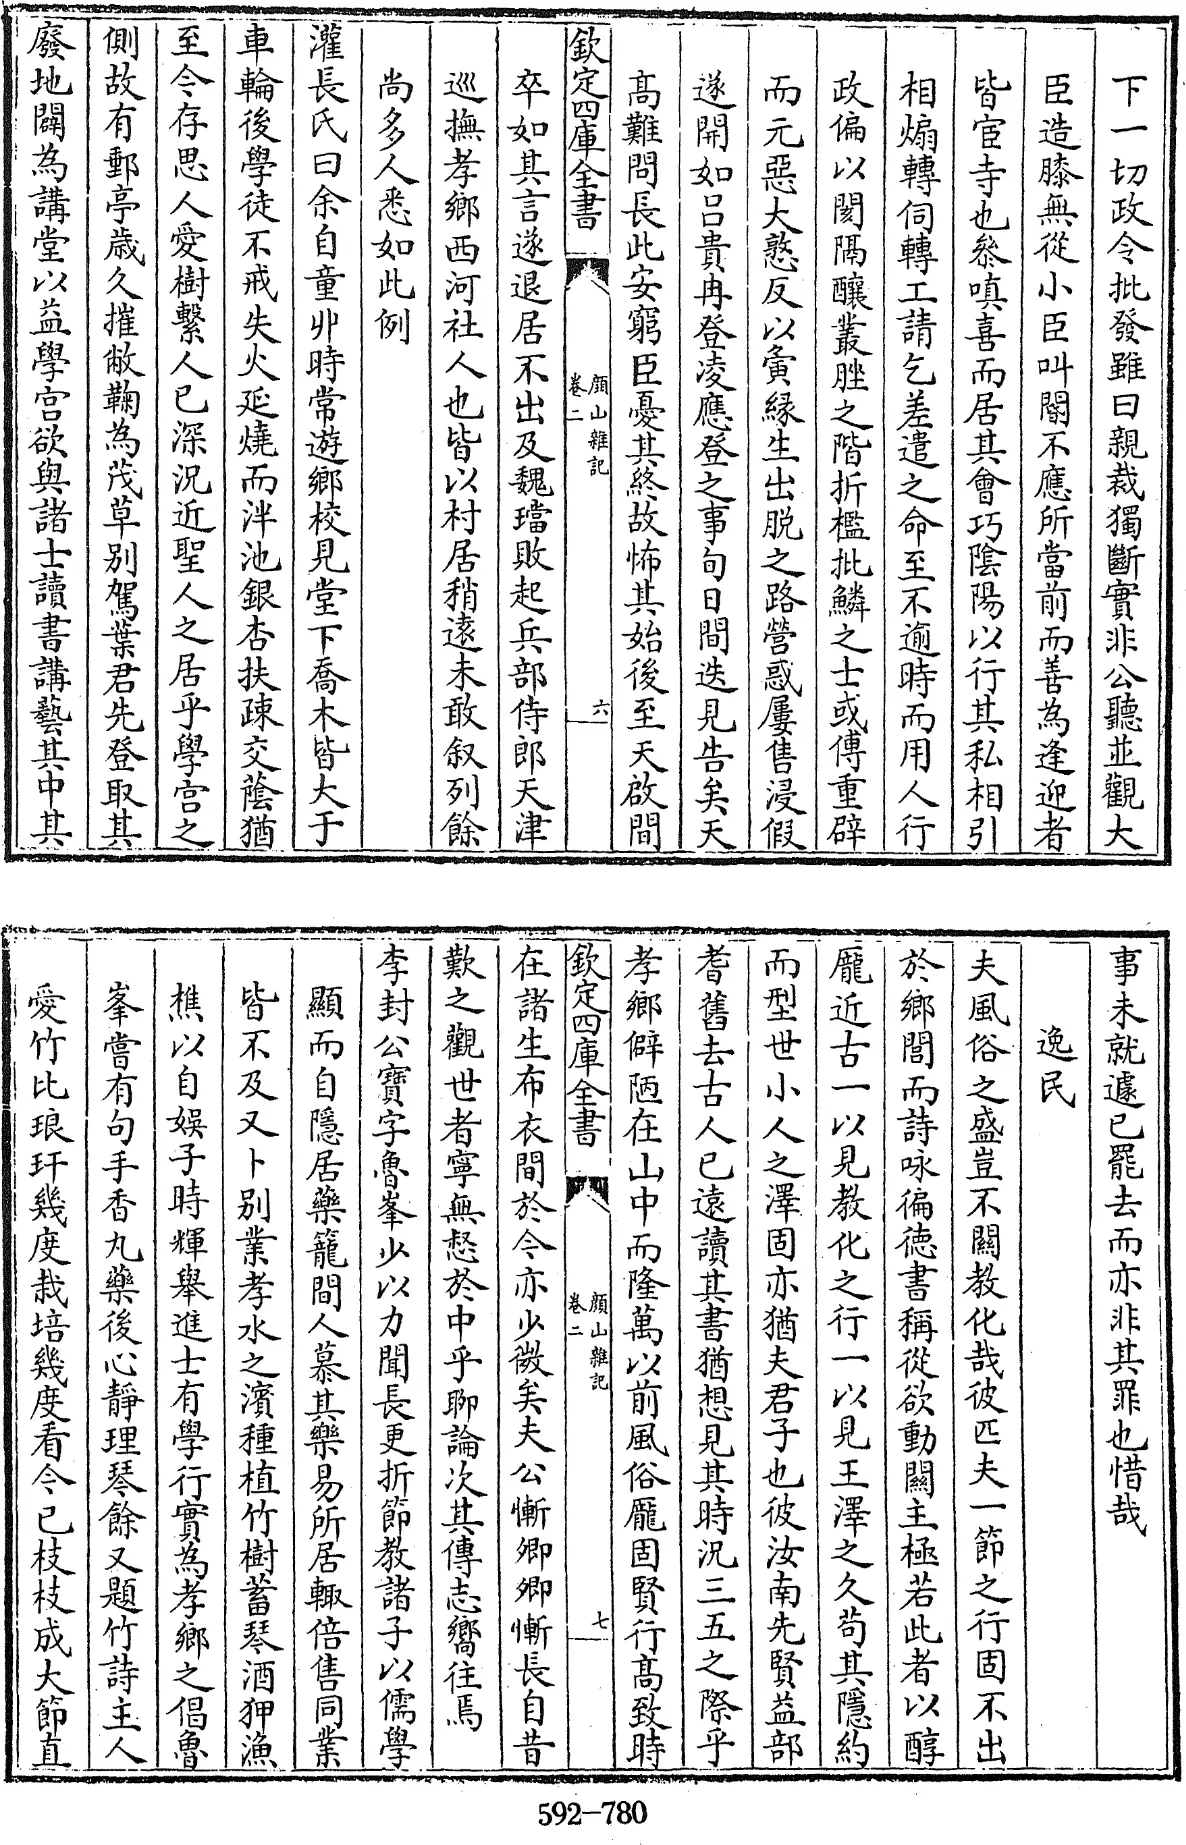 下一切政令批發雖曰親裁獨斷實非公聽並觀大
臣造膝無從小臣叫閽不應所當前而善為逢迎者
皆宦寺也叅嗔喜而居其會巧陰陽以行其私相引
相煽轉伺轉工請乞差遣之命至不逾時而用人行
政偏以閡隔釀叢脞之階折檻批鱗之士或傅重辟
而元惡大憝反以夤緣生出脱之路營惑屢售浸假
遂開如吕貴冉登凌應登之事旬日間迭見告矣天
髙難問長此安窮臣憂其終故怖其始後至天啟間
欽定四庫全書
顔山雜記
卷二
六
卒如其言遂退居不出及魏璫敗起兵部侍郎天津
巡撫孝鄉西河社人也皆以村居稍逺未敢叙列餘
尚多人悉如此例
灌長氏曰余自童丱時常遊鄉校見堂下喬木皆大于
車輪後學徒不戒失火延燒而泮池銀杏扶疎交蔭猶
至今存思人愛樹繫人已深況近聖人之居乎學宫之
側故有郵亭歳久摧敝鞠為茂草别駕葉君先登取其
廢地闢為講堂以益學宫欲與諸士讀書講藝其中其
事未就遽已罷去而亦非其罪也惜哉
逸民
夫風俗之盛豈不關教化哉彼匹夫一節之行固不出
於鄉閭而詩咏徧德書稱從欲動關主極若此者以醇
龎近古一以見教化之行一以見王澤之久苟其隱約
而型世小人之澤固亦猶夫君子也彼汝南先賢益部
耆舊去古人已遠讀其書猶想見其時況三五之際乎
孝鄉僻陋在山中而隆萬以前風俗龎固賢行髙致時
欽定四庫全書
顔山雜記
卷二
七
在諸生布衣間於今亦少微矣夫公慚卿卿慚長自昔
歎之觀世者寧無愁於中乎聊論次其傳志嚮往焉
李封公寳字魯峯少以力聞長更折節教諸子以儒學
顯而自隱居藥籠間人慕其樂易所居輙倍售同業
皆不及又卜别業孝水之濱種植竹樹蓄琴酒狎漁
樵以自娱子時輝舉進士有學行實為孝鄉之倡魯
峯嘗有句手香丸藥後心靜理琴餘又題竹詩主人
愛竹比琅玕幾度栽培幾度看今已枝枝成大節直
592-780